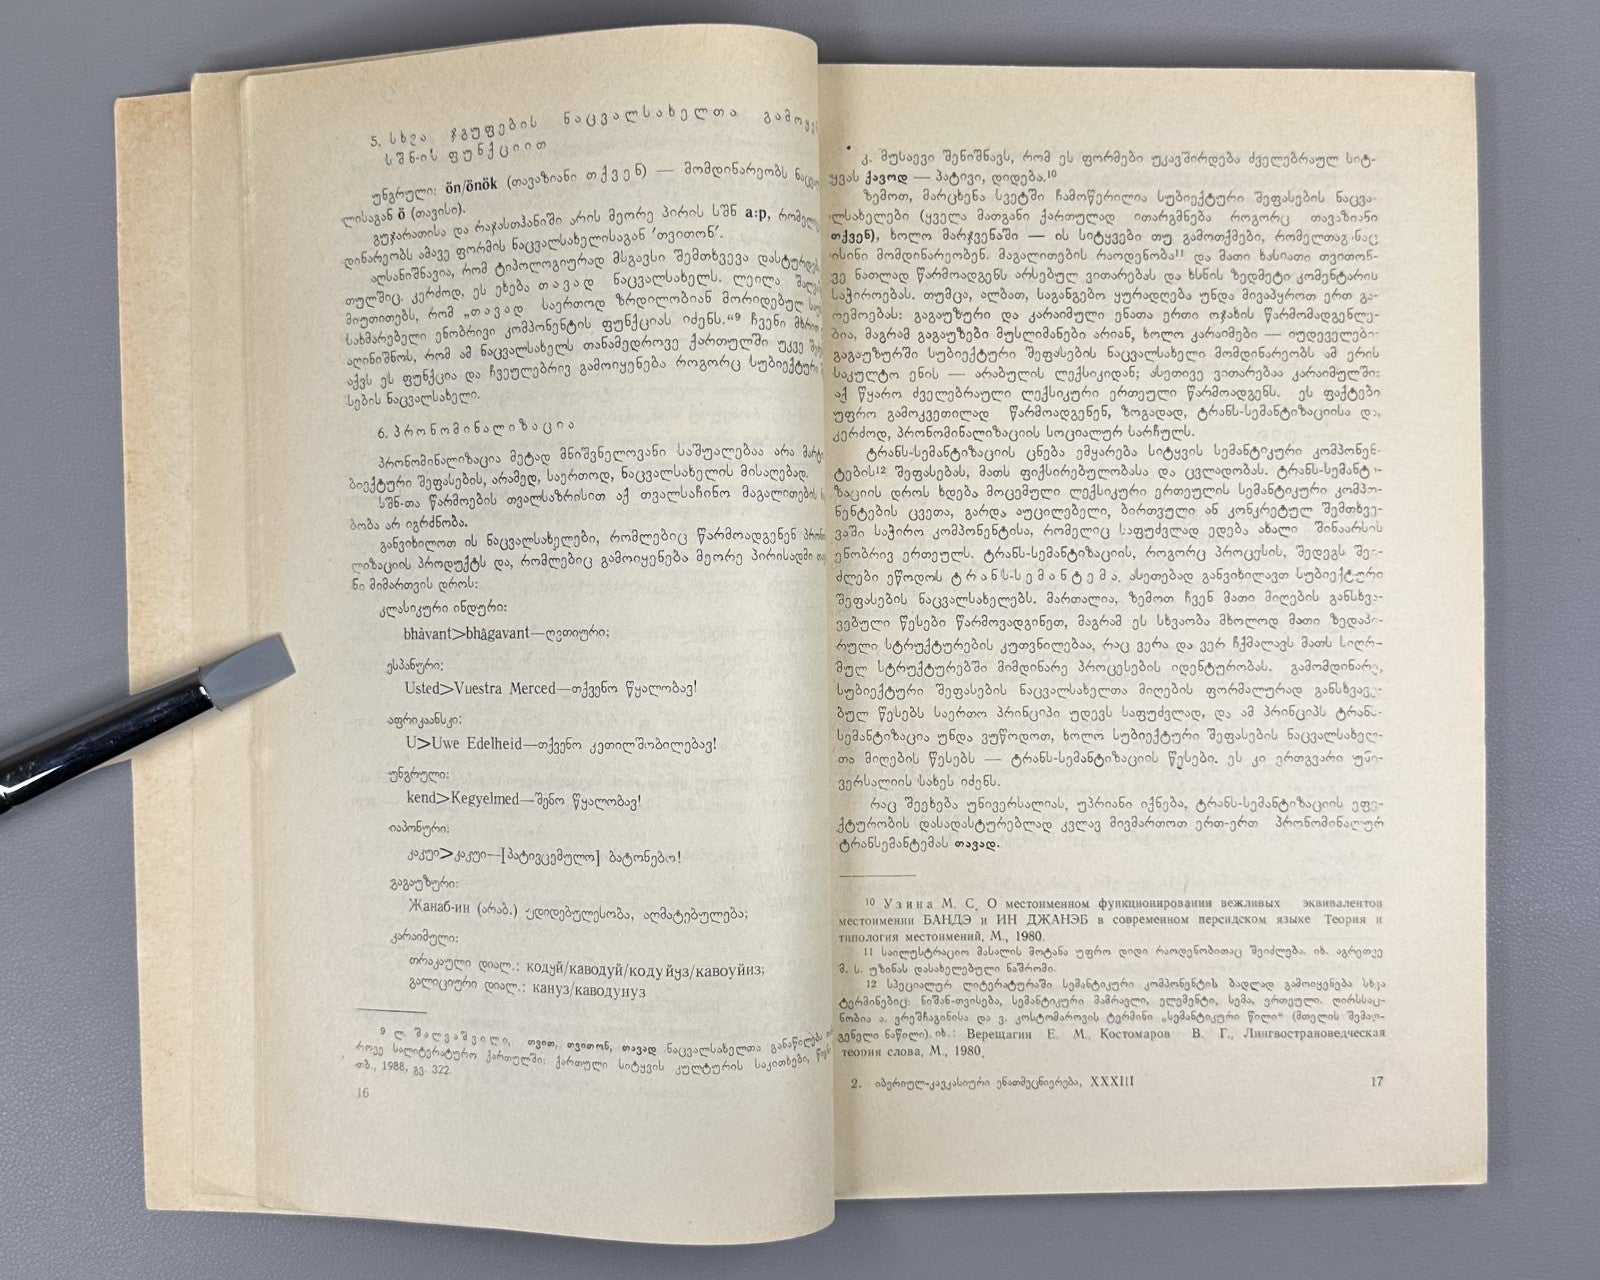 5. სხვა ჯგუფების ნაცვალსახელთა
სშნ-ის ფუნქციით
უნგრული: ön/önök (თავაზიანი თქვენ) — მომდინარეობს
ლისაგან ö (თავისი).
გუჯარათისა და რაჯასთჰანიში არის მეორე პირის სშნ a:p,
დინარეობს ამავე ფორმის ნაცვალსახელისაგან 'თვითონ'.
აღსანიშნავია, რომ ტიპოლოგიურად მსგავსი შემთხვევა
თულშიც. კერძოდ, ეს ეხება თავად ნაცვალსახელს. ლეილა
მიუთითებს, რომ „თავად საერთოდ ზრდილობიან მორიდებულ
სახმარებელი ენობრივი კომპონენტის ფუნქციას იძენს.“⁹ ჩვენი
აღინიშნოს, რომ ამ ნაცვალსახელს თანამედროვე ქართულში უკვე
აქვს ეს ფუნქცია და ჩვეულებრივ გამოიყენება როგორც
სების ნაცვალსახელი.
6. პრონომინალიზაცია
პრონომინალიზაცია მეტად მნიშვნელოვანი საშუალებაა არა
ბიექტური შეფასების, არამედ, საერთოდ, ნაცვალსახელის მისაღებად.
სშნ-თა წარმოების თვალსაზრისით აქ თვალსაჩინო მაგალითების
ბობა არ იგრძნობა.
განვიხილოთ ის ნაცვალსახელები, რომლებიც წარმოადგენენ
ლიზაციის პროდუქტს და, რომლებიც გამოიყენება მეორე პირისადმი
ნი მიმართვის დროს:
კლასიკური ინდური:
bhàvant>bhâgavant—ღვთიური;
ესპანური:
Usted>Vuestra Merced—თქვენო წყალობავ!
აფრიკაანსკი:
U>Uwe Edelheid—თქვენო კეთილშობილებავ!
უნგრული:
kend>Kegyelmed—შენო წყალობავ!
იაპონური:
კაკუი>კაკუი—[პატივცემულო] ბატონებო!
გაგაუზური:
Жанаб-ин (არაბ.) უდიდებულესობა, აღმატებულება;
კარაიმული:
თრაკაული დიალ.: кодуй/каводуй/кодуйуз/кавоуйиз;
გალიციური დიალ.: кануз/каводунуз
⁹ ლ. შალვაშვილი, თვით, თვითონ, თავად ნაცვალსახელთა განაწილება
როვე სალიტერატურო ქართულში: ქართული სიტყვის კულტურის საკითხები,
თბ., 1988, გვ. 322.
16
კ. მუსაევი შენიშნავს, რომ ეს ფორმები უკავშირდება ძველებრაულ სიტ-
ყვას ქავოდ — პატივი, დიდება.¹⁰
ზემოთ, მარცხენა სვეტში ჩამოწერილია სუბიექტური შეფასების ნაცვა-
ლსახელები (ყველა მათგანი ქართულად ითარგმნება როგორც თავაზიანი
თქვენ), ხოლო მარჯვენაში — ის სიტყვები თუ გამოთქმები, რომელთაგანაც
ისინი მომდინარეობენ. მაგალითების რაოდენობა¹¹ და მათი ხასიათი თვითონ-
ვე ნათლად წარმოადგენს არსებულ ვითარებას და ხსნის ზედმეტი კომენტარის
საჭიროებას. თუმცა, ალბათ, საგანგებო ყურადღება უნდა მივაპყროთ ერთ გა-
რემოებას: გაგაუზური და კარაიმული ენათა ერთი ოჯახის წარმომადგენლე-
ბია, მაგრამ გაგაუზები მუსლიმანები არიან, ხოლო კარაიმები — იუდეველები.
გაგაუზურში სუბიექტური შეფასების ნაცვალსახელი მომდინარეობს ამ ერის
საკულტო ენის — არაბულის ლექსიკიდან; ასეთივე ვითარებაა კარაიმულში:
აქ წყარო ძველებრაული ლექსიკური ერთეული წარმოადგენს. ეს ფაქტები
უფრო გამოკვეთილად წარმოადგენენ, ზოგადად, ტრანს-სემანტიზაციისა და,
კერძოდ, პრონომინალიზაციის სოციალურ სარჩულს.
ტრანს-სემანტიზაციის ცნება ემყარება სიტყვის სემანტიკური კომპონენ-
ტების¹² შეფასებას, მათს ფიქსირებულობასა და ცვლადობას. ტრანს-სემანტი-
ზაციის დროს ხდება მოცემული ლექსიკური ერთეულის სემანტიკური კომპო-
ნენტების ცვეთა, გარდა აუცილებელი, ბირთვული ან კონკრეტულ შემთხვე-
ვაში საჭირო კომპონენტისა, რომელიც საფუძვლად ედება ახალი შინაარსის
ენობრივ ერთეულს. ტრანს-სემანტიზაციის, როგორც პროცესის, შედეგს შე-
ძლები ეწოდოს ტრანს-სემანტემა. ასეთებად განვიხილავთ სუბიექტური
შეფასების ნაცვალსახელებს. მართალია, ზემოთ ჩვენ მათი მიღების განსხვა-
ვებული წესები წარმოვადგინეთ, მაგრამ ეს სხვაობა მხოლოდ მათი ზედაპი-
რული სტრუქტურების კუთვნილებაა, რაც ვერა და ვერ ჩქმალავს მათს სიღრ-
მულ სტრუქტურებში მიმდინარე პროცესების იდენტურობას. გამომდინარე,
სუბიექტური შეფასების ნაცვალსახელთა მიღების ფორმალურად განსხვავე-
ბულ წესებს საერთო პრინციპი უდევს საფუძვლად, და ამ პრინციპს ტრანს-
სემანტიზაცია უნდა ვუწოდოთ, ხოლო სუბიექტური შეფასების ნაცვალსახელ-
თა მიღების წესებს — ტრანს-სემანტიზაციის წესები. ეს კი ერთგვარი უნი-
ვერსალიის სახეს იძენს.
რაც შეეხება უნივერსალიას, უპრიანი იქნება, ტრანს-სემანტიზაციის ეფე-
ქტურობის დასადასტურებლად კვლავ მივმართოთ ერთ-ერთ პრონომინალურ
ტრანსემანტემას თავად.
¹⁰ Узина М. С. О местоименном функционировании вежливых эквивалентов
местоимении БАНДЭ и ИН ДЖАНЭБ в современном персидском языке Теория и
типология местоимений, М., 1980.
11 საილუსტრაციო მასალის მოტანა უფრო დიდი რაოდენობითაც შეიძლება. იხ. აგრეთვე
მ. ს. უზინას დასახელებული ნაშრომი.
12 სპეციალურ ლიტერატურაში სემანტიკური კომპონენტის ბადლად გამოიყენება სხვა
ტერმინებიც: ნიშან-თვისება, სემანტიკური მამრავლი, ელემენტი, სემა, ერთეული. ღირსსაც-
ნობია ა. ვრეშჩაგინისა და ვ. კოსტომაროვის ტერმინი „სემანტიკური წილი“ (მთელის შემად-
გენელი ნაწილი). იხ.: Верещагин Е. М. Костомаров В. Г., Лингвострановедческая
теория слова, М., 1980.
2. იბერიულ-კავკასიური ენათმეცნიერება, XXXIII
17